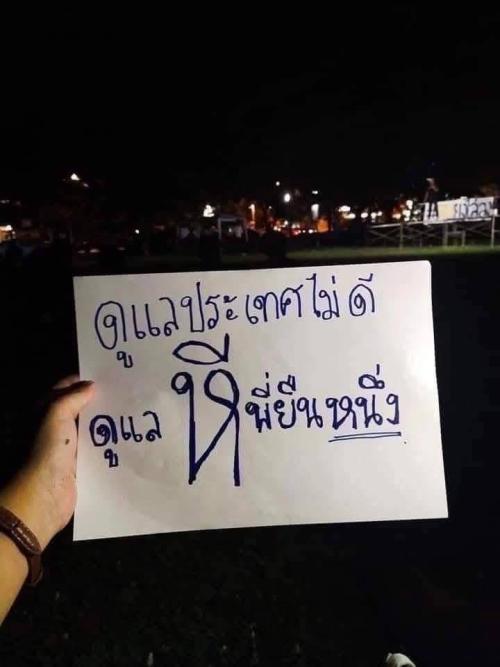 ดูแลประเทศไม่ดี
ดูแล หี พี่ยืนหนึ่ง